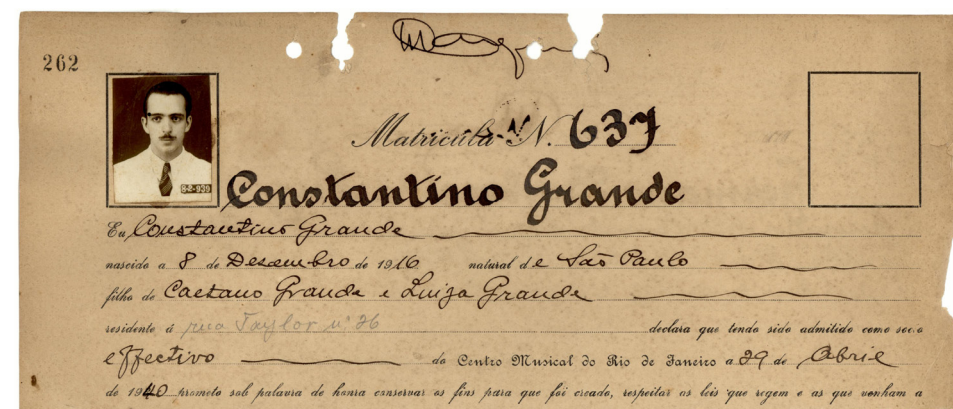 262
Matricula N. 637
8-2-939
Constantino Grande
Eu, Constantino Grande
nascido a 8 de Desembro de 1916 natural de São Paulo
filho de Caetano Grande e Luiza Grande
residente á rua Taylor nº 26 declara que tendo sido admitido como socio
effectivo do Centro Musical do Rio de Janeiro a 29 de Abril
de 1940 prometo sob palavra de honra conservar os fins para que foi creado, respeitar as leis que regem e as que venham a